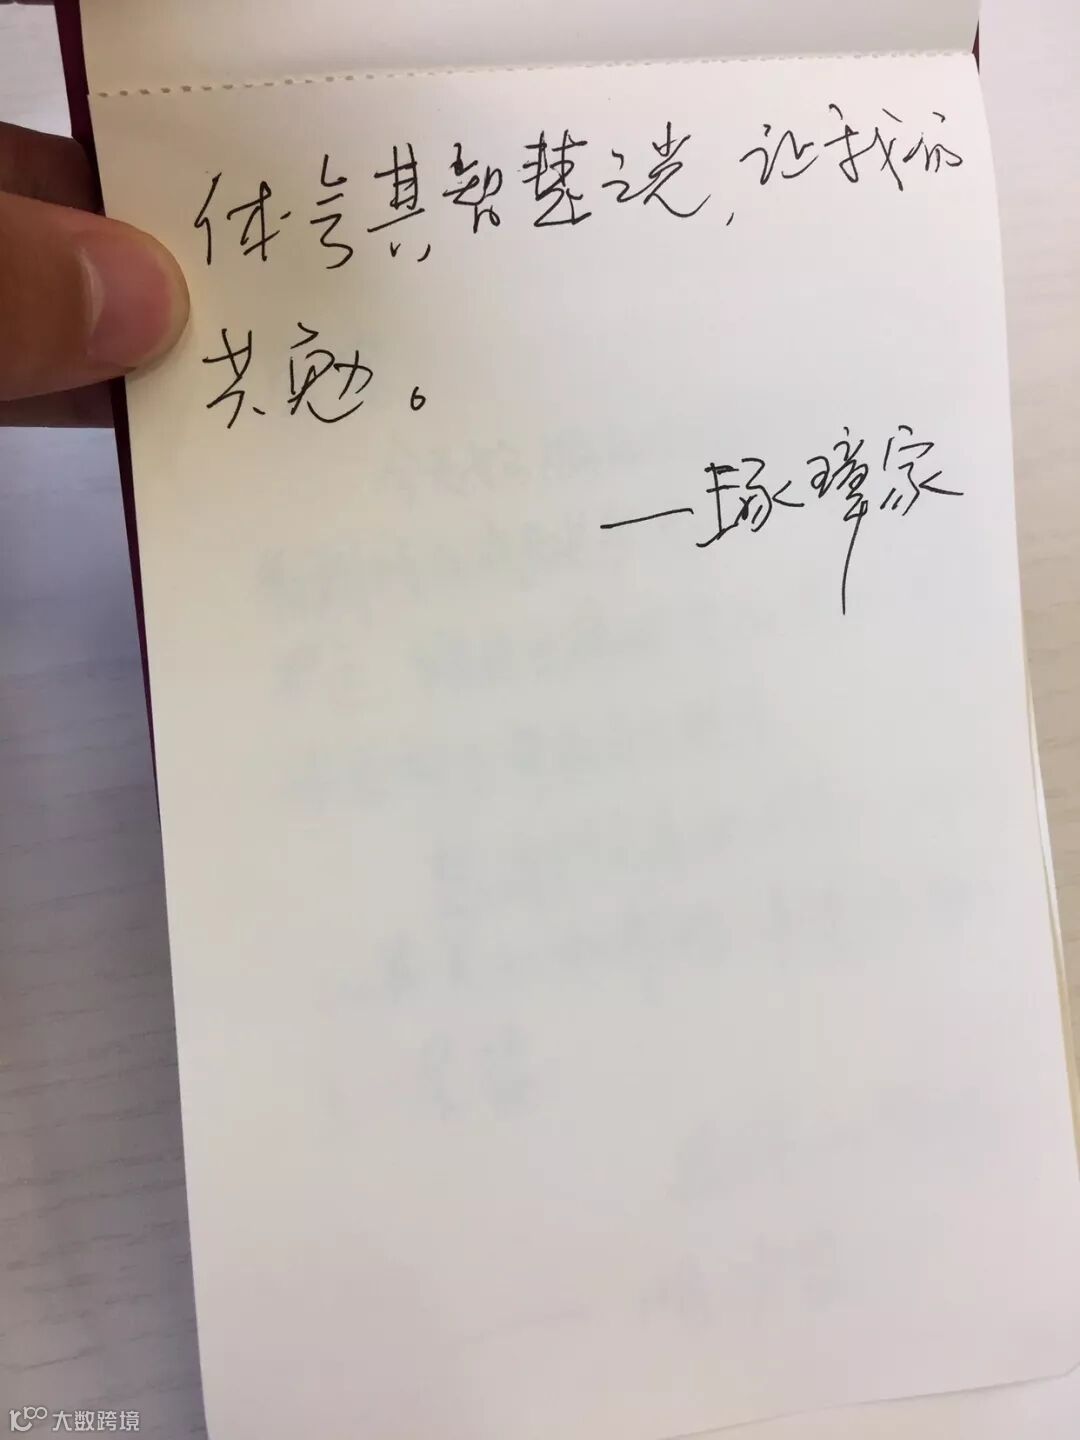 体会其智慧之光，让我们
共勉。
——琢璋家
大数跨境